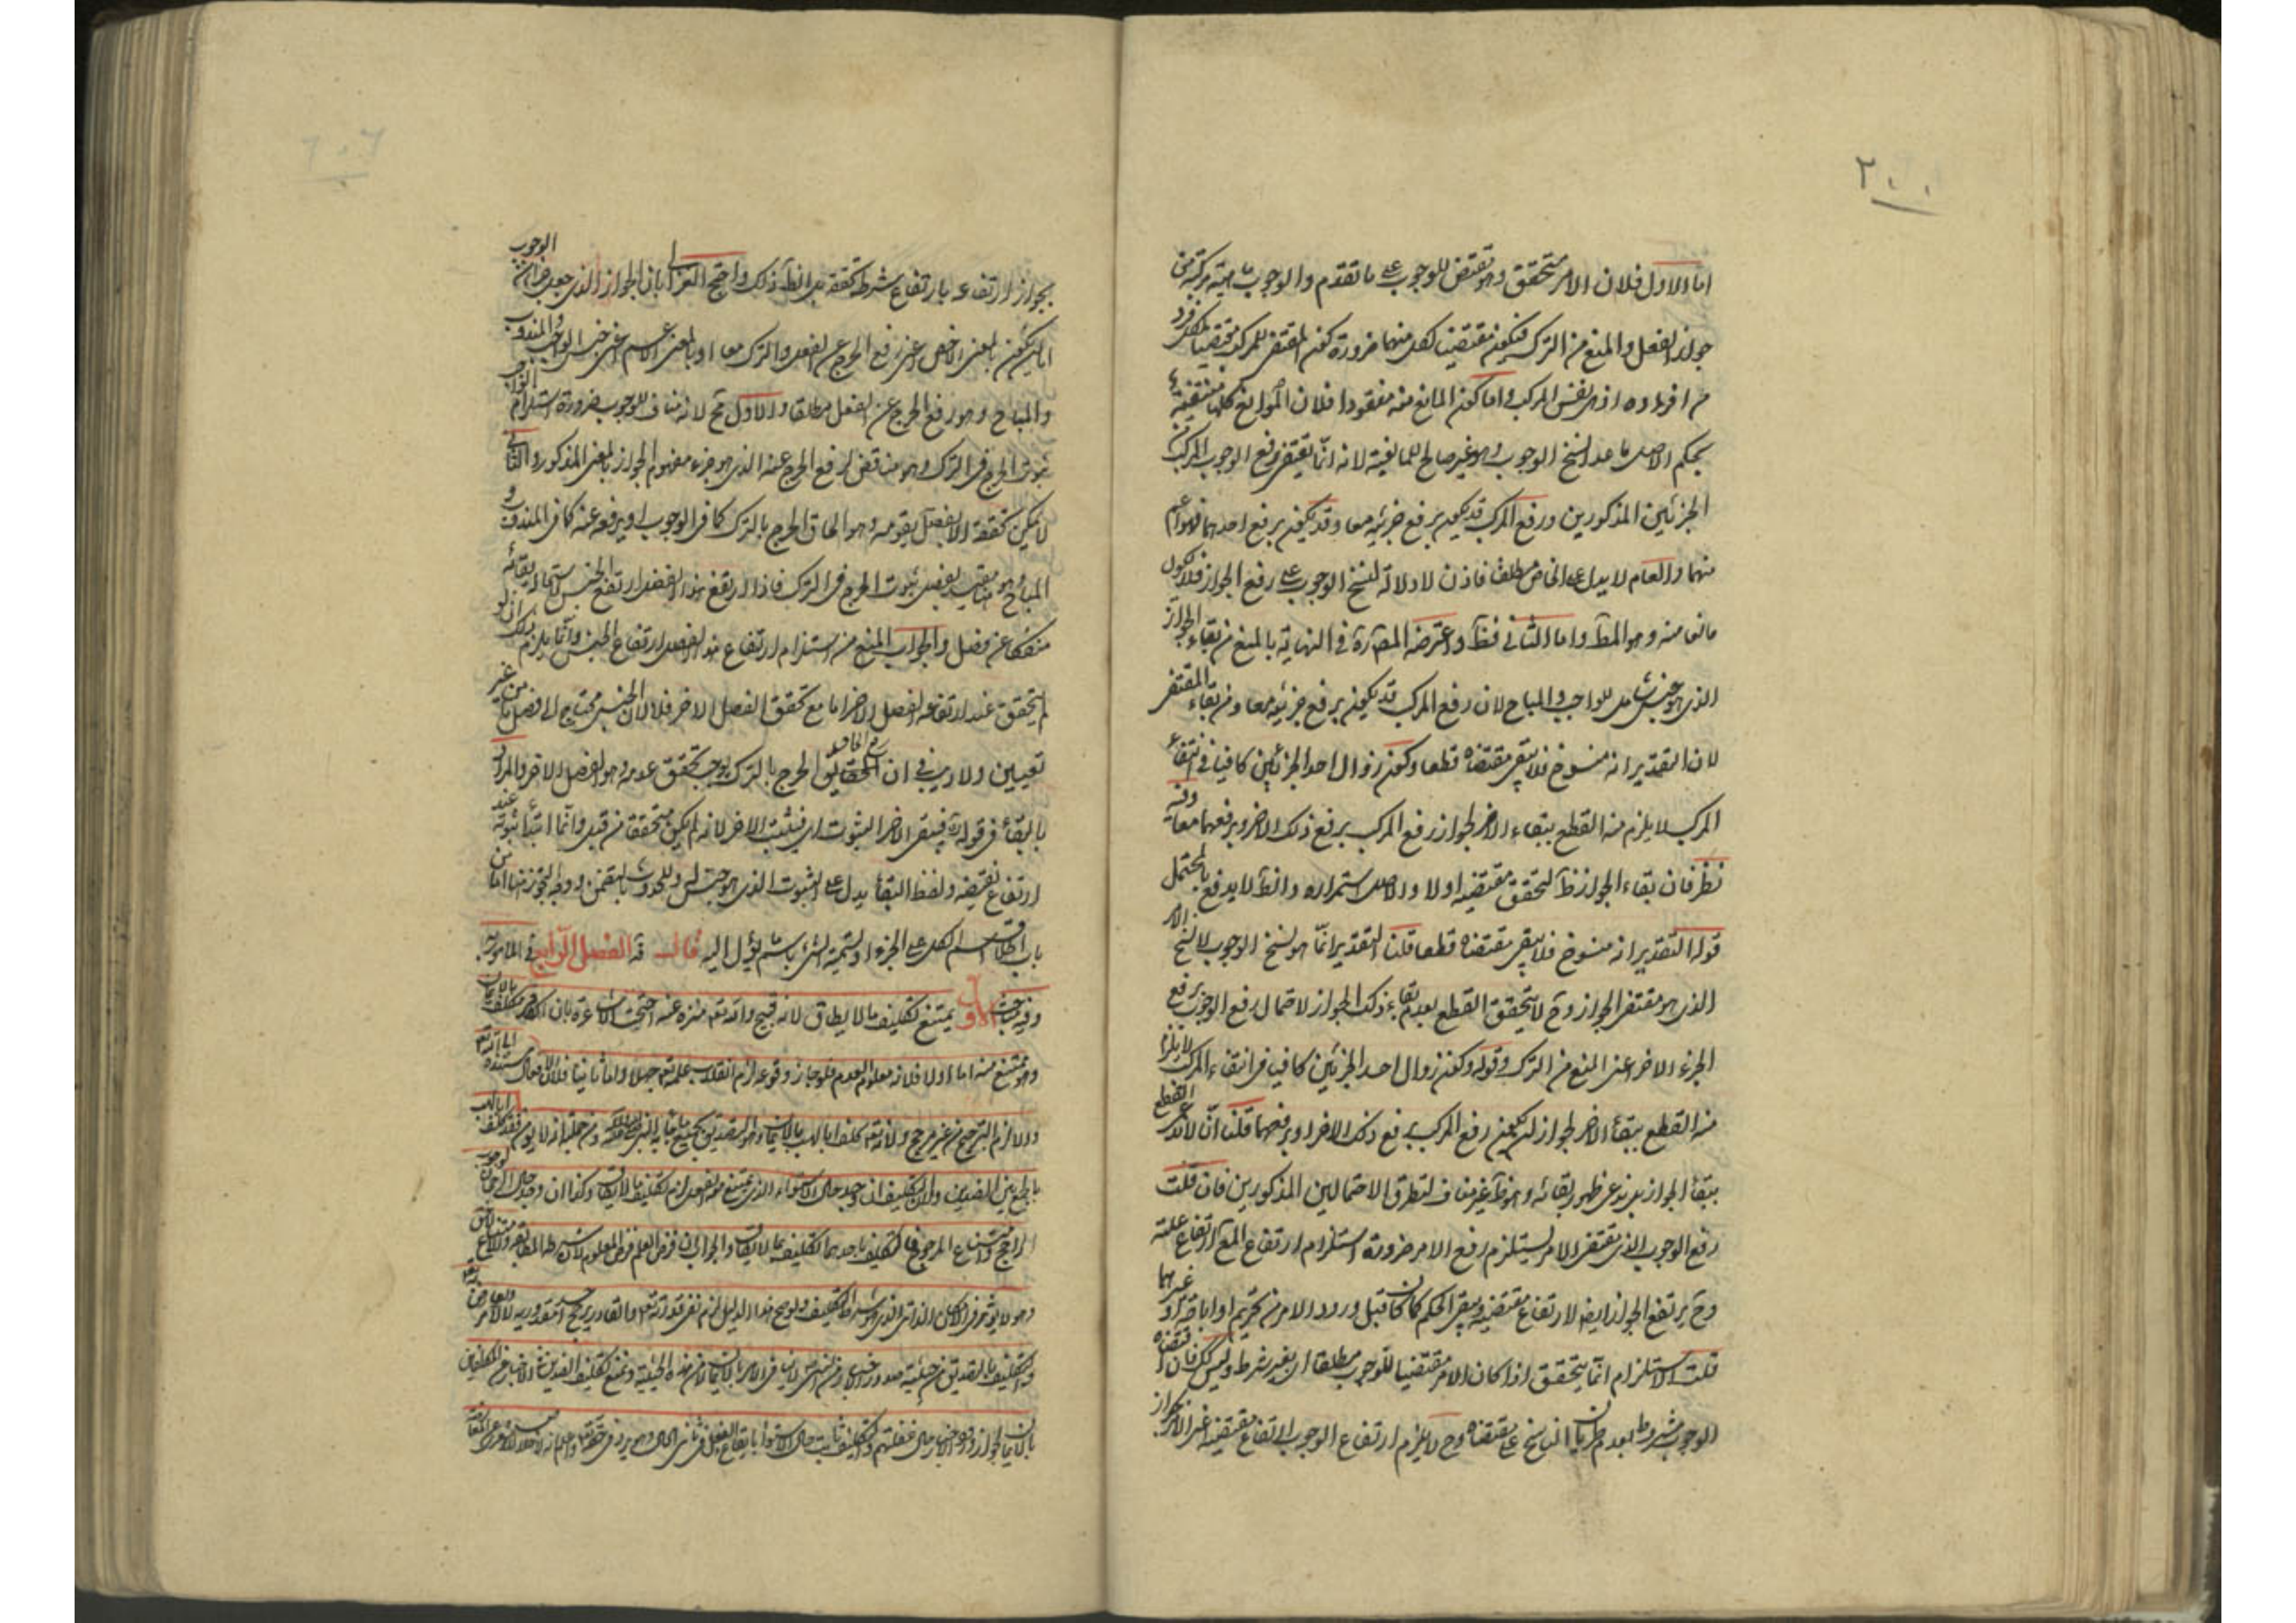 ٢٠٠
اما الاول فلان الامر متحقق وهو مقتض للوجوب على ما تقدم والوجوب ماهية مركبة من
جواز الفعل والمنع من الترك فيكون مقتضيا لكل منهما ضرورة كون المقتضى للمركب مقتضيا لكل فرد
من افراده اذ هى نفس المركب واما كون المانع منه مفقودا فلان الموانع كلها منتفية
بحكم الاصل ما عدا نسخ الوجوب وهو غير صالح للمانعية لانه انما يقتضى رفع الوجوب المركب من
الجزئين المذكورين ورفع المركب قد يكون برفع جزئيه معا وقد يكون برفع احدهما فهو اعم
منهما والعام لا يدل على الخاص مطلقا فاذن لا دلالة لنسخ الوجوب على رفع الجواز فلا يكون
مانعا منه وهو المط واما الثانى فظ واعترضه المص ره فى النهاية بالمنع من بقاء الجواز
الذى هو جنس شامل للواجب والمباح لان رفع المركب قد يكون برفع جزئيه معا ومن بقاء المقتضى
لان التقدير انه منسوخ فلا يبقى مقتضاه قطعا وكون زوال احد الجزئين كافيا فى انتفاء
المركب لا يلزم منه القطع ببقاء الاخر لجواز رفع المركب برفع ذلك الاخر وبرفعهما معا وفيه
نظر فان بقاء الجواز ظ لتحقق مقتضيه اولا والاصل استمراره والظ لا يدفع بالمحتمل
قوله التقدير انه منسوخ فلا يبقى مقتضاه قطعا قلنا التقدير انما هو نسخ الوجوب لا نسخ الامر
الذى هو مقتضى الجواز وح لا يتحقق القطع بعدم بقاء ذلك الجواز لاحتمال رفع الوجوب برفع
الجزء الاخر اعنى المنع من الترك وقوله وكون زوال احد الجزئين كافيا فى انتفاء المركب لا يلزم
منه القطع ببقاء الاخر لجواز ان يكون رفع المركب برفع ذلك الاخر او برفعهما قلنا انا لا ندعى القطع
ببقاء الجواز بل ندعى ظهور بقائه وهو ظ غير مناف لتطرق الاحتمالين المذكورين فان قلت
رفع الوجوب الذى يقتضى الامر يستلزم رفع الامر ضرورة استلزام ارتفاع المع ارتفاع علته
وح يرتفع الجواز ايضا لارتفاع مقتضيه ويبقى الحكم كما كان قبل ورود الامر من تحريم او اباحة او غيرهما
قلت الاستلزام انما يتحقق اذا كان الامر مقتضيا للوجوب مطلقا اى بغير شرط وليس كك فان اقتضاءه
الوجوب مشروط بعدم طريان الناسخ على مقتضاه وح لا يلزم ارتفاع الوجوب لارتفاع مقتضيه اعنى الامر
بجواز ارتفاعه بارتفاع شرط تحققه بل الظ ذلك واحتج الغزالى بان الجواز الذى جعل جزءا من الوجوب
اما ان يكون بالمعنى الاخص اعنى رفع الحرج عن الفعل والترك معا او بالمعنى الاعم اعنى جنس الواجب والمندوب
والمباح وهو رفع الحرج عن الفعل مطلقا والاول مح لانه مناف للوجوب ضرورة استلزام الواجب
ثبوت الحرج فى الترك وهو مناقض لرفع الحرج عنه الذى هو جزء مفهوم الجواز بالمعنى المذكور والثانى
لا يمكن تحققه الا بفصل يقومه وهو الحاق الحرج بالترك كما فى الوجوب او رفعه عنه كما فى المندوب و
المباح وهو متقيد بفصل ثبوت الحرج فى الترك فاذا ارتفع هذا الفصل ارتفع الجنس لاستحالة بقائه
منفكا عن فصل والجواب المنع من استلزام ارتفاع هذا الفصل ارتفاع الجنس وانما يلزم ذلك ان لو
لم يتحقق عند ارتفاعه الفصل الاخر اما مع تحقق الفصل الاخر فلا لان الجنس محتاج الى فصل ما من غير
تعيين ولا ريب فى ان رفع الحاق الحرج بالترك يوجب تحقق عدمه وهو الفصل الاخر والمراد
بالبقاء فى قوله ره فيبقى الاخر الثبوت اى فيثبت الاخر لانه لم يكن متحققا من قبل وانما ابتدا ثبوته عند
ارتفاع نقيضه ولفظ البقاء يدل على الثبوت الذى هو جنس له وللحدوث بالتضمن ووجه التجوز هنا اما من
باب اطلاق اسم الكل على الجزء او تسمية الشئ باسم ما يؤول اليه قال قه الفصل الرابع فى المامور به
وفيه مباحث الاول يمتنع تكليف ما لا يطاق لانه قبيح والله تع منزه عنه احتجت الاشاعرة بان الكافر مكلف بالايمان
وهو ممتنع منه اما اولا فلانه معلوم العدم فلو جاز وقوعه لزم انقلاب علمه تع جهلا واما ثانيا فلان الافعال مستندة اما الى الله تع
والا لزم الترجيح من غير مرجح ولانه تع كلف ابا لهب بالايمان وهو التصديق بجميع ما جاء به النبى ومن جملته انه لا يؤمن فقد كلف ابا لهب
بالجمع بين الضدين ولان التكليف ان وجد حال الاستواء الذى يمتنع معه الفعل لزم تكليف ما لا يطاق وكذا ان وجد حال الرجحان لوجوب
الراجح وامتناع المرجوح فالتكليف باحدهما تكليف بما لا يطاق والجواب ان فرض العلم فرض المعلوم لان شرطه المطابقة
وهو لا يؤثر فى الامكان الذاتى الذى هو شرط التكليف ولو صح هذا الدليل لزم نفى قدرته تع والقادر يرجح احد مقدوريه لا لامر
والتكليف بالتصديق من حيثية صدور الخبر
بالايمان